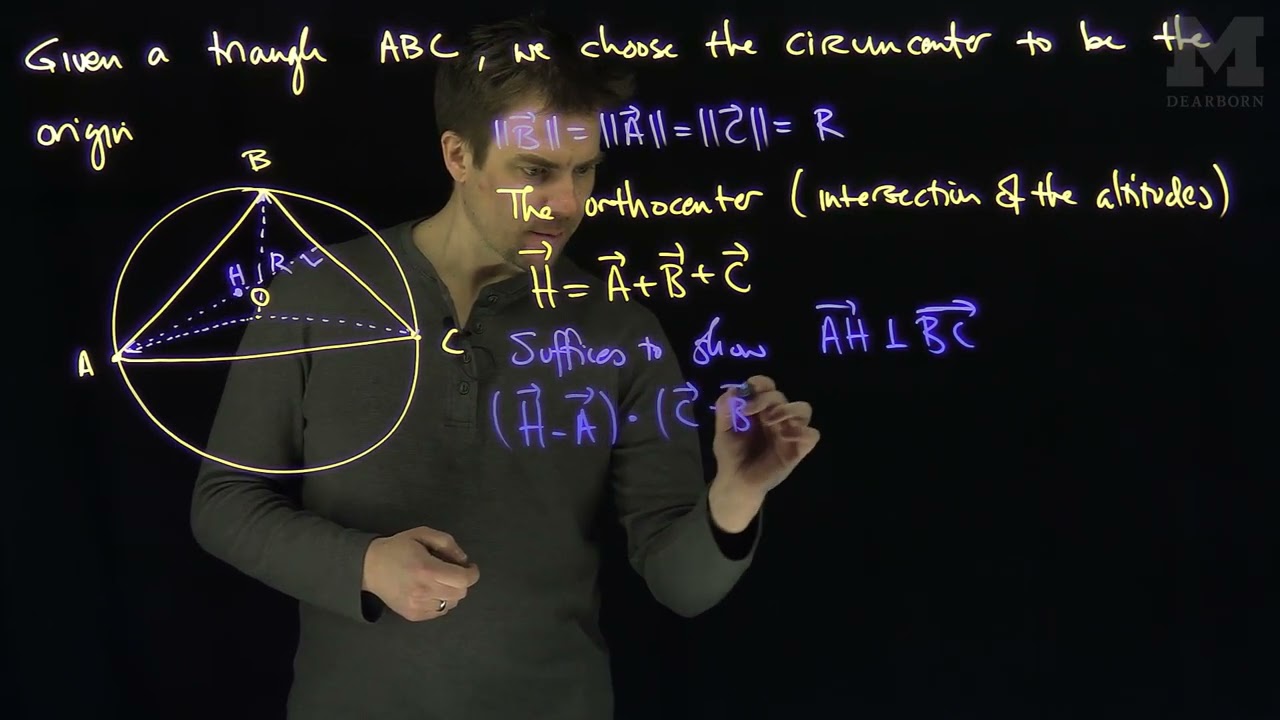 Given a triangle ABC, we choose the circumcenter to be the
origin
M
DEARBORN
||B⃗|| = ||A⃗|| = ||C⃗|| = R
The orthocenter (intersection of the altitudes)
H⃗ = A⃗ + B⃗ + C⃗
Suffices to show AH⃗ ⊥ BC⃗
(H⃗ - A⃗) · (C⃗ - B⃗
B
H
R
O
A
C